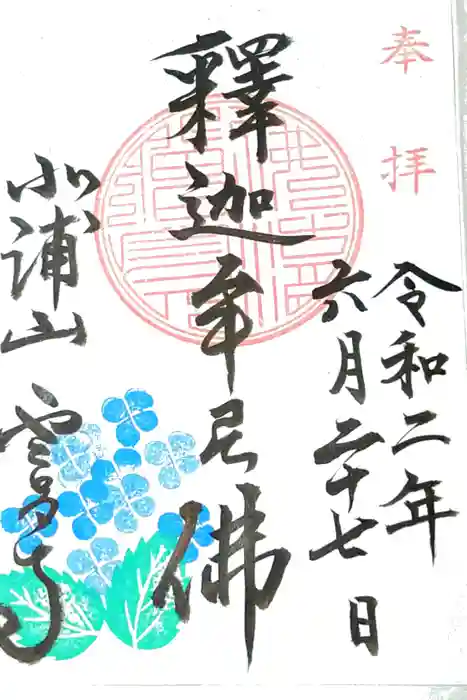 奉拝
令和二年
六月二十七日
釋迦牟尼佛
北浦山 雲昌寺